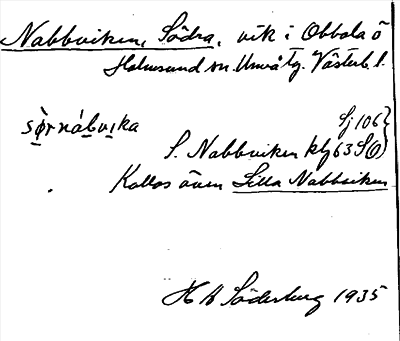 Nabbviken, Södra, vik i Obbola ö
Holmsund sn. Umeå tg. Västerb. l.
sø̀rnábvika
Sj 106
S. Nabbviken kbl 63 SO
Kallas även Lilla Nabbviken
H A Söderburg 1935